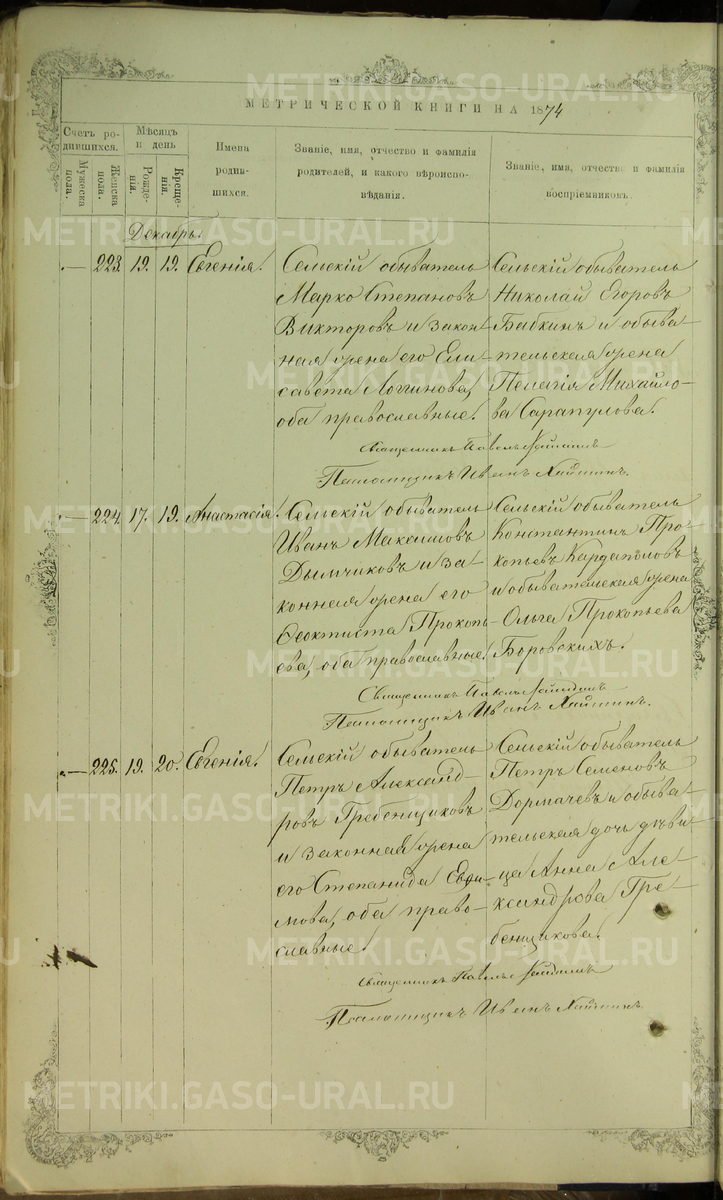 МЕТРИЧЕСКОЙ КНИГИ НА 1874
Счетъ родившихся.
Мужеска пола.
Женска пола.
Мѣсяцъ и день
Рожденія.
Крещенія.
Имена родившихся.
Званіе, имя, отчество и фамилія родителей, и какого вѣроисповѣданія.
Званіе, имя, отчество и фамилія воспріемниковъ.
Декабрь.
— 223. 19. 19. Евгенія.
Сельскій обыватель
Марко Степановъ
Викторовъ и закон-
ная жена его Ели-
савета Логгинова,
оба православные.
Сельскій обыватель
Николай Егоровъ
Бабкинъ и обыва-
тельская жена
Пелагія Михайло-
ва Сарапулова.
Священникъ Павелъ
Псаломщикъ Иванъ
— 224. 17. 19. Анастасія.
Сельскій обыватель
Иванъ Максимовъ
Дымчиковъ и за-
конная жена его
Ѳеоктиста Прокопь-
ева, оба православные.
Сельскій обыватель
Константинъ Про-
копьевъ Кардаполовъ
и обывательская жена
Ольга Прокопьева
Боровскихъ.
Священникъ Павелъ
Псаломщикъ Иванъ
— 225. 19. 20. Евгенія.
Сельскій обыватель
Петръ Александ-
ровъ Гребенщиковъ
и законная жена
его Степанида Евѳи-
мова, оба право-
славные.
Сельскій обыватель
Петръ Семеновъ
Дормачевъ и обыва-
тельская дочь дѣви-
ца Анна Але-
ксандрова Гре-
бенщикова.
Священникъ Павелъ
Псаломщикъ Иванъ
METRIKI.GASO-URAL.RU